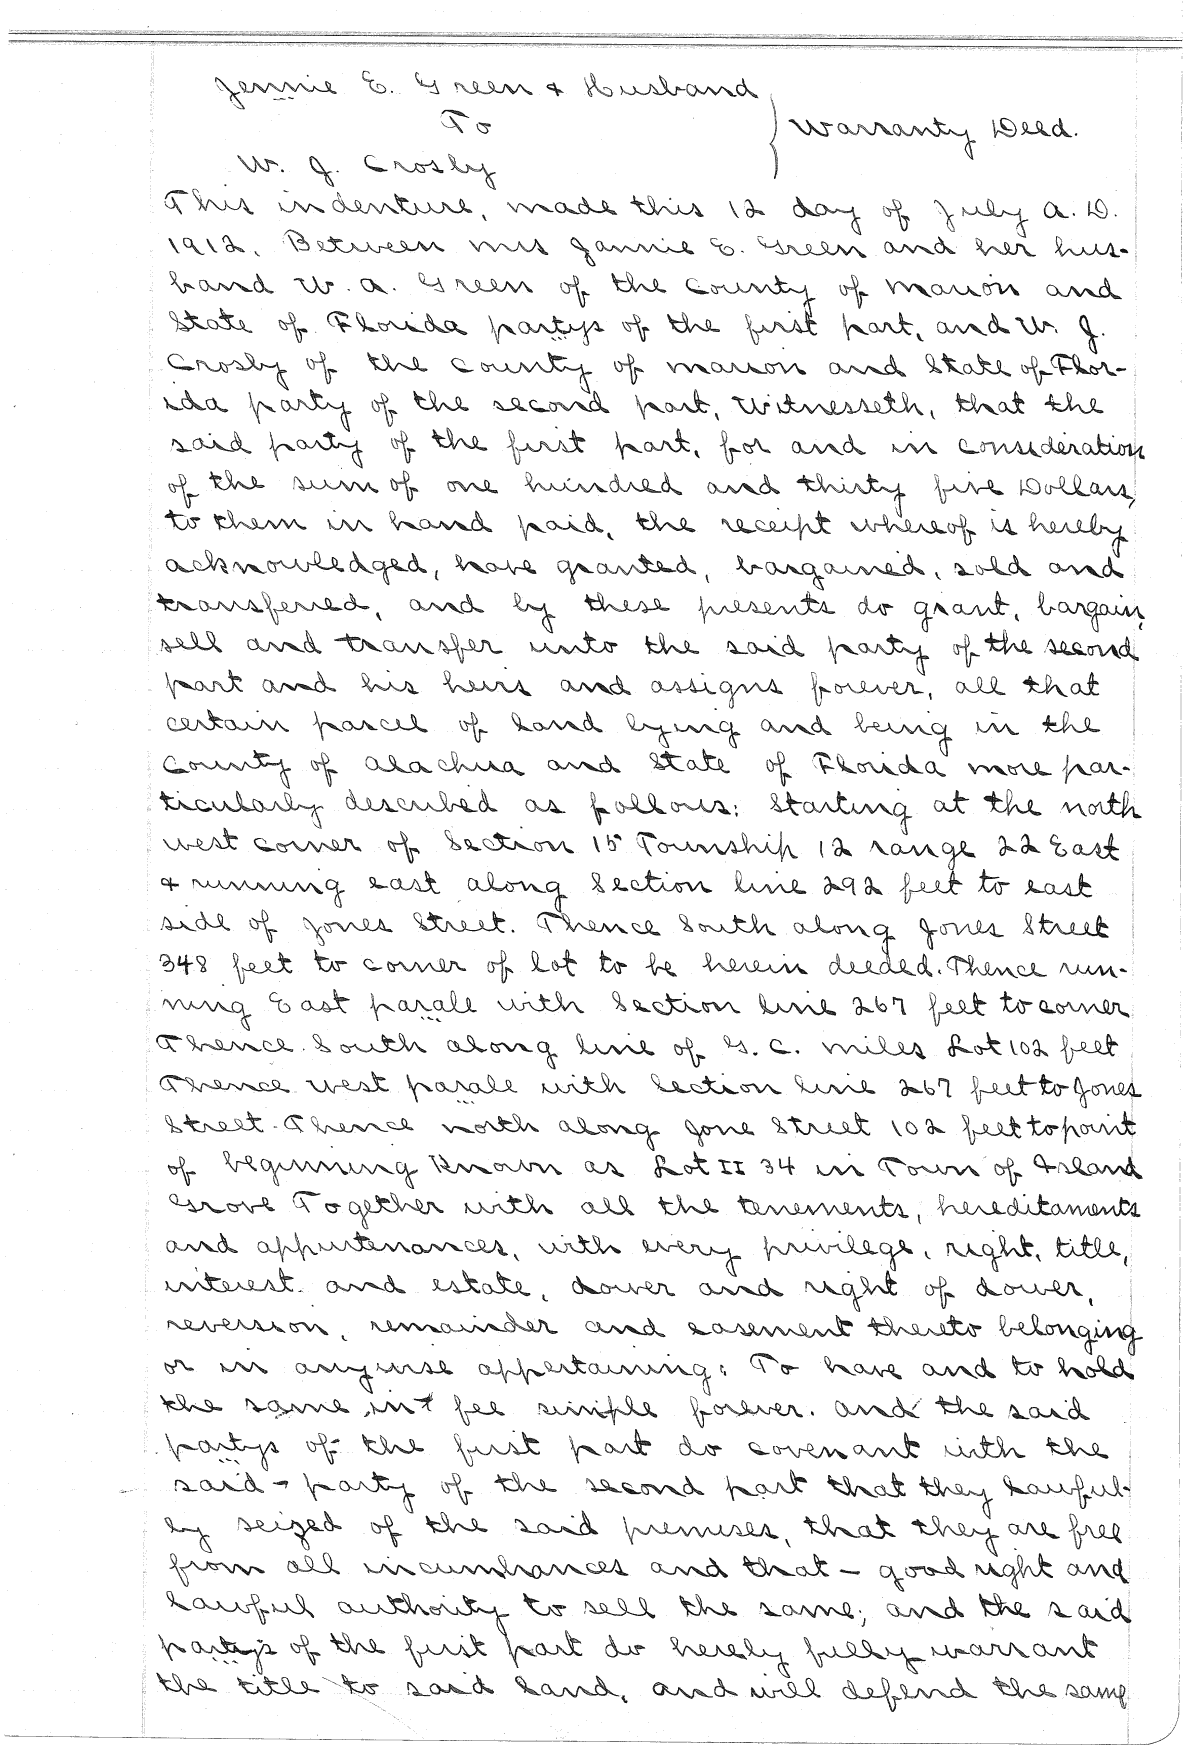 Jennie E. Green & Husband
To
Warranty Deed.
W. J. Crosby
This indenture, made this 12 day of July A. D.
1912, Between Mrs Jannie E. Green and her hus-
band W. A. Green of the County of Marion and
State of Florida partys of the first part, and W. J.
Crosby of the County of Marion and State of Flor-
ida party of the second part, Witnesseth, that the
said party of the first part, for and in consideration
of the sum of one hundred and thirty five Dollars,
to them in hand paid, the receipt whereof is hereby
acknowledged, have granted, bargained, sold and
transferred, and by these presents do grant, bargain,
sell and transfer unto the said party of the second
part and his heirs and assigns forever, all that
certain parcel of land lying and being in the
County of Alachua and State of Florida more par-
ticularly described as follows: Starting at the north
west corner of Section 15 Township 12 range 22 East
& running east along Section line 292 feet to east
side of Jones Street. Thence South along Jones Street
348 feet to corner of lot to be herein deeded. Thence run-
ning East parale with Section line 267 feet to corner
Thence South along line of G. C. Miles Lot 102 feet
Thence west parale with Section line 267 feet to Jones
Street. Thence north along Jone Street 102 feet to point
of beginning Known as Lot II 34 in Town of Island
Grove Together with all the tenements, hereditaments
and appurtenances, with every privilege, right, title,
interest and estate, dower and right of dower,
reversion, remainder and easement thereto belonging
or in anywise appertaining: To have and to hold
the same in fee simple forever. And the said
partys of the first part do covenant with the
said - party of the second part that they lawful-
ly seized of the said premises, that they are free
from all incumbrances and that - good right and
lawful authority to sell the same; and the said
partys of the first part do hereby fully warrant
the title to said land, and will defend the same